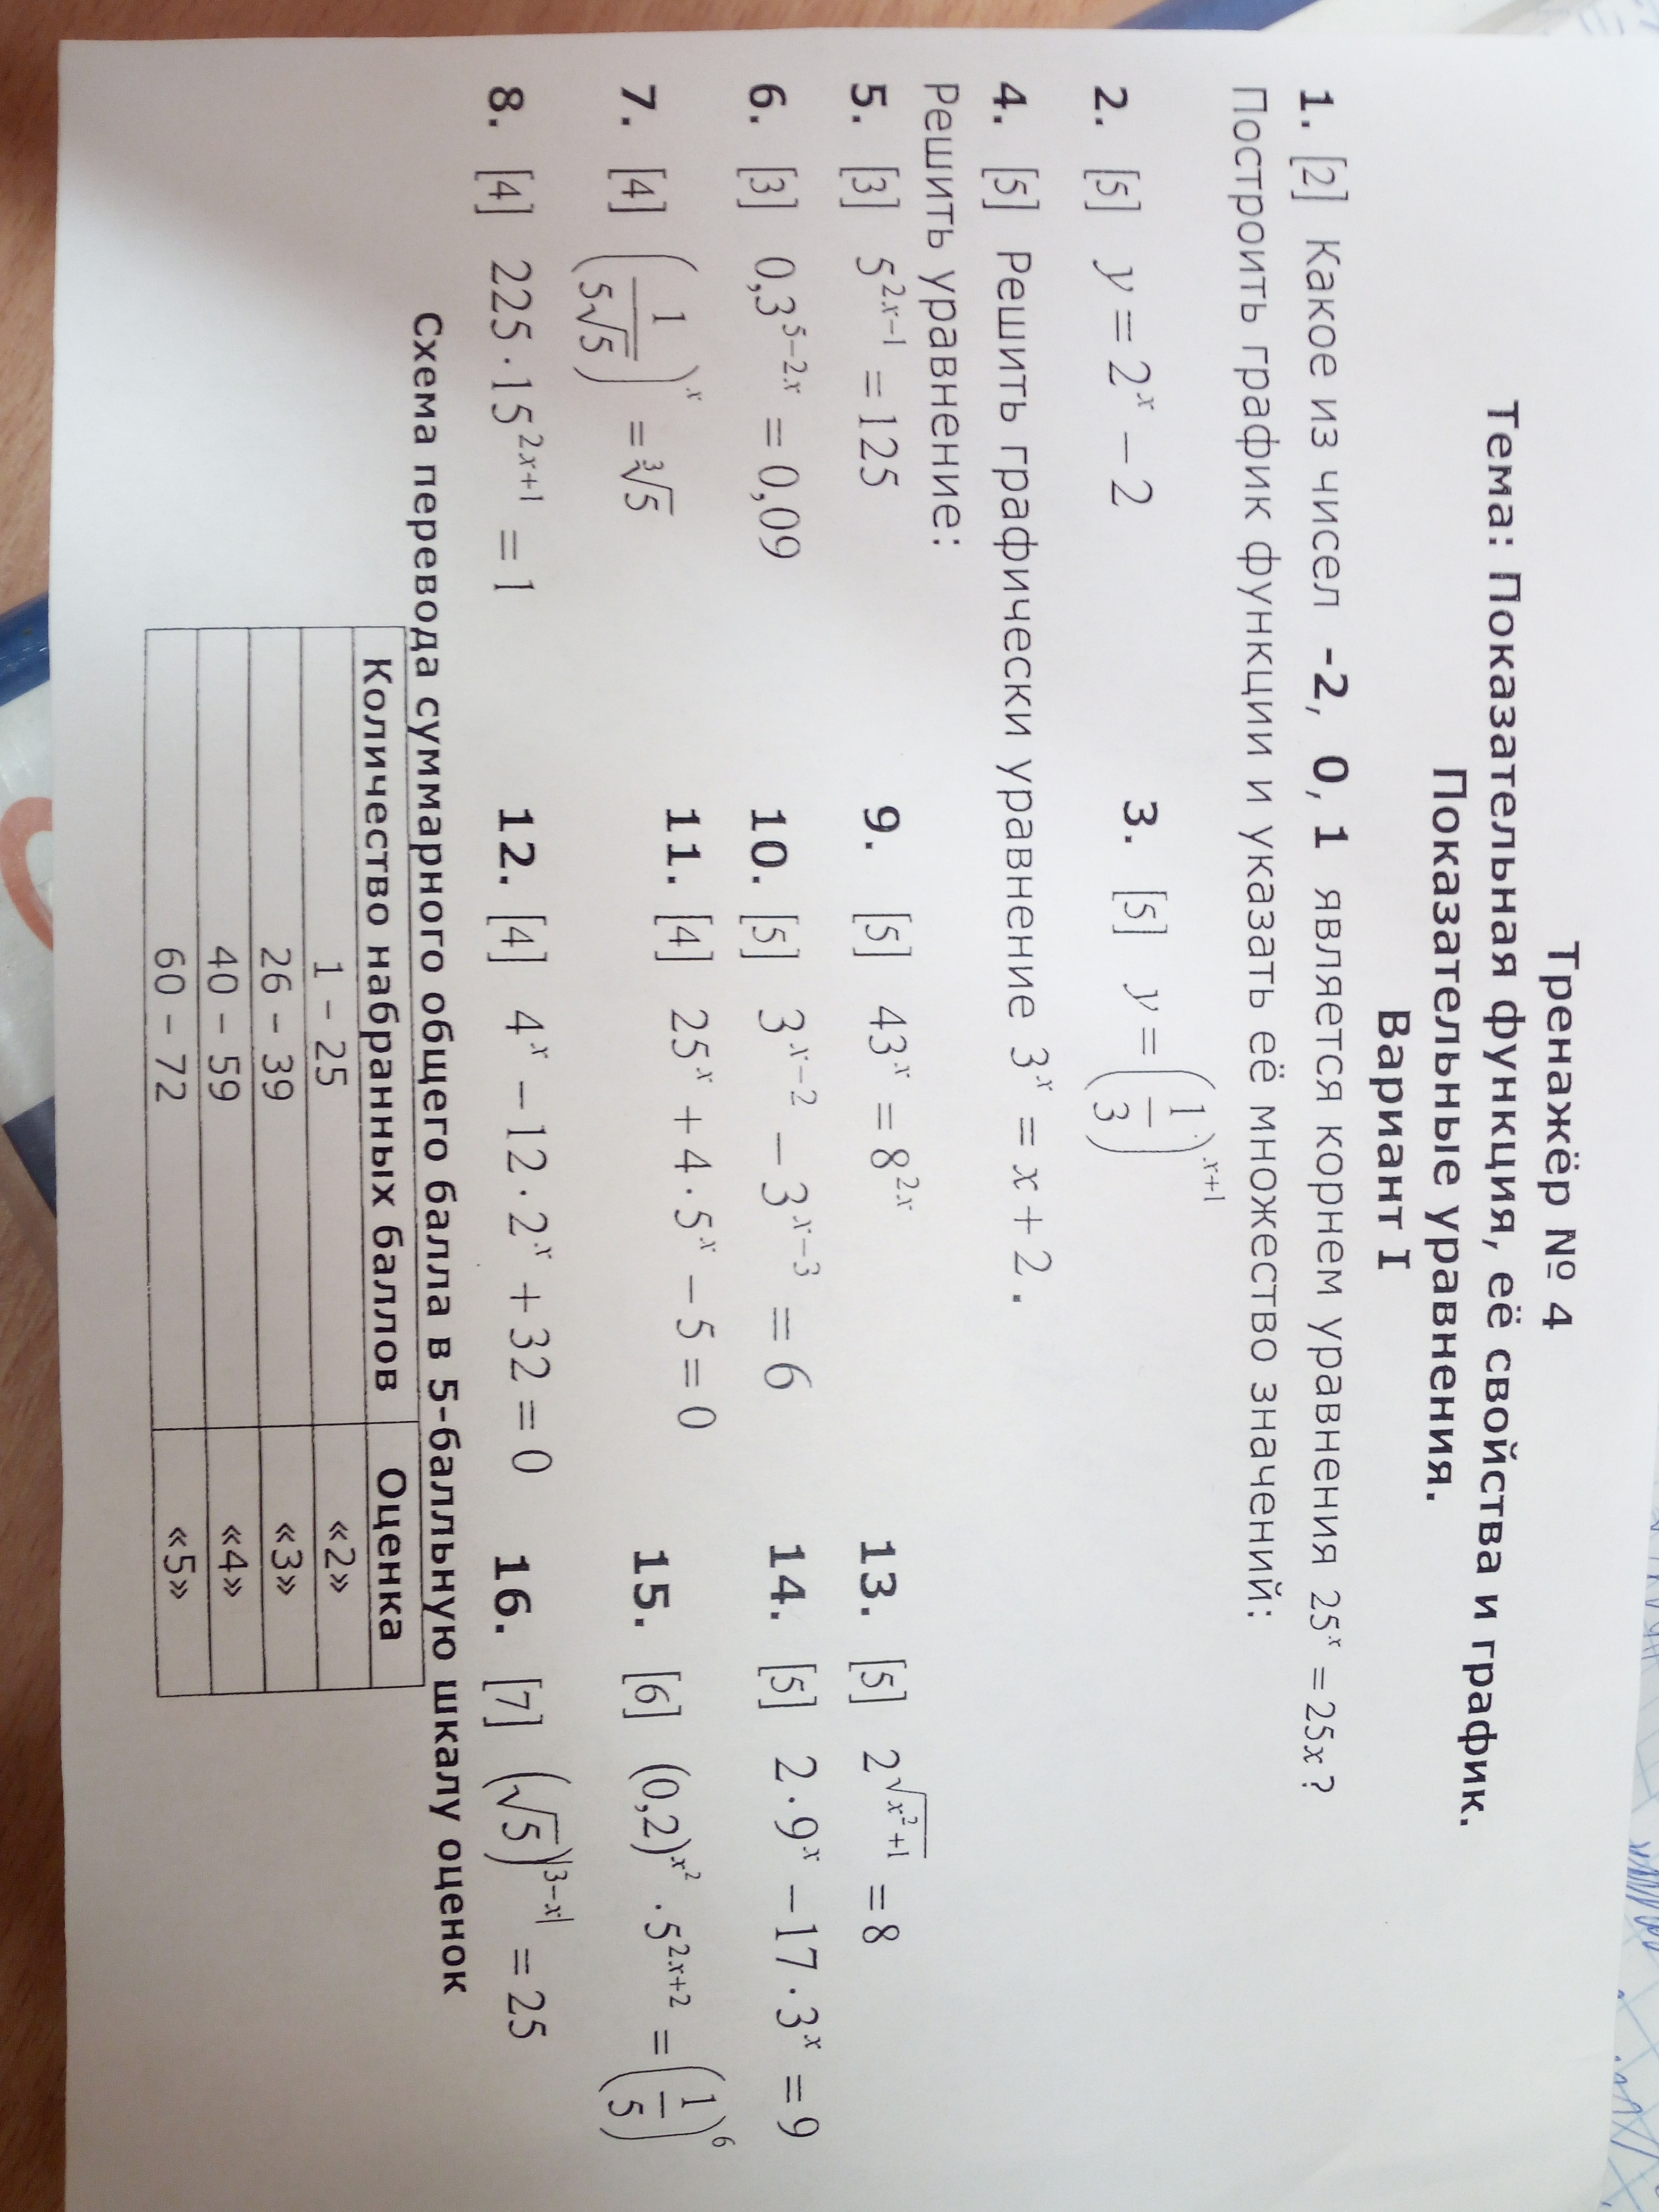 Тренажёр № 4
Тема: Показательная функция, её свойства и график.
Показательные уравнения.
Вариант I
1. [2] Какое из чисел -2, 0, 1 является корнем уравнения 25^x = 25x?
Построить график функции и указать её множество значений:
2. [5] y = 2^x − 2
3. [5] y = (1/3)^(x+1)
4. [5] Решить графически уравнение 3^x = x + 2.
Решить уравнение:
5. [3] 5^(2x−1) = 125
6. [3] 0,3^(5−2x) = 0,09
7. [4] (1/(5√5))^x = ∛5
8. [4] 225·15^(2x+1) = 1
9. [5] 43^x = 8^(2x)
10. [5] 3^(x−2) − 3^(x−3) = 6
11. [4] 25^x + 4·5^x − 5 = 0
12. [4] 4^x − 12·2^x + 32 = 0
13. [5] 2^√(x²+1) = 8
14. [5] 2·9^x − 17·3^x = 9
15. [6] (0,2)^(x²) · 5^(2x+2) = (1/5)^6
16. [7] (√5)^|3−x| = 25
Схема перевода суммарного общего балла в 5-балльную шкалу оценок
Количество набранных баллов Оценка
1 – 25 «2»
26 – 39 «3»
40 – 59 «4»
60 – 72 «5»